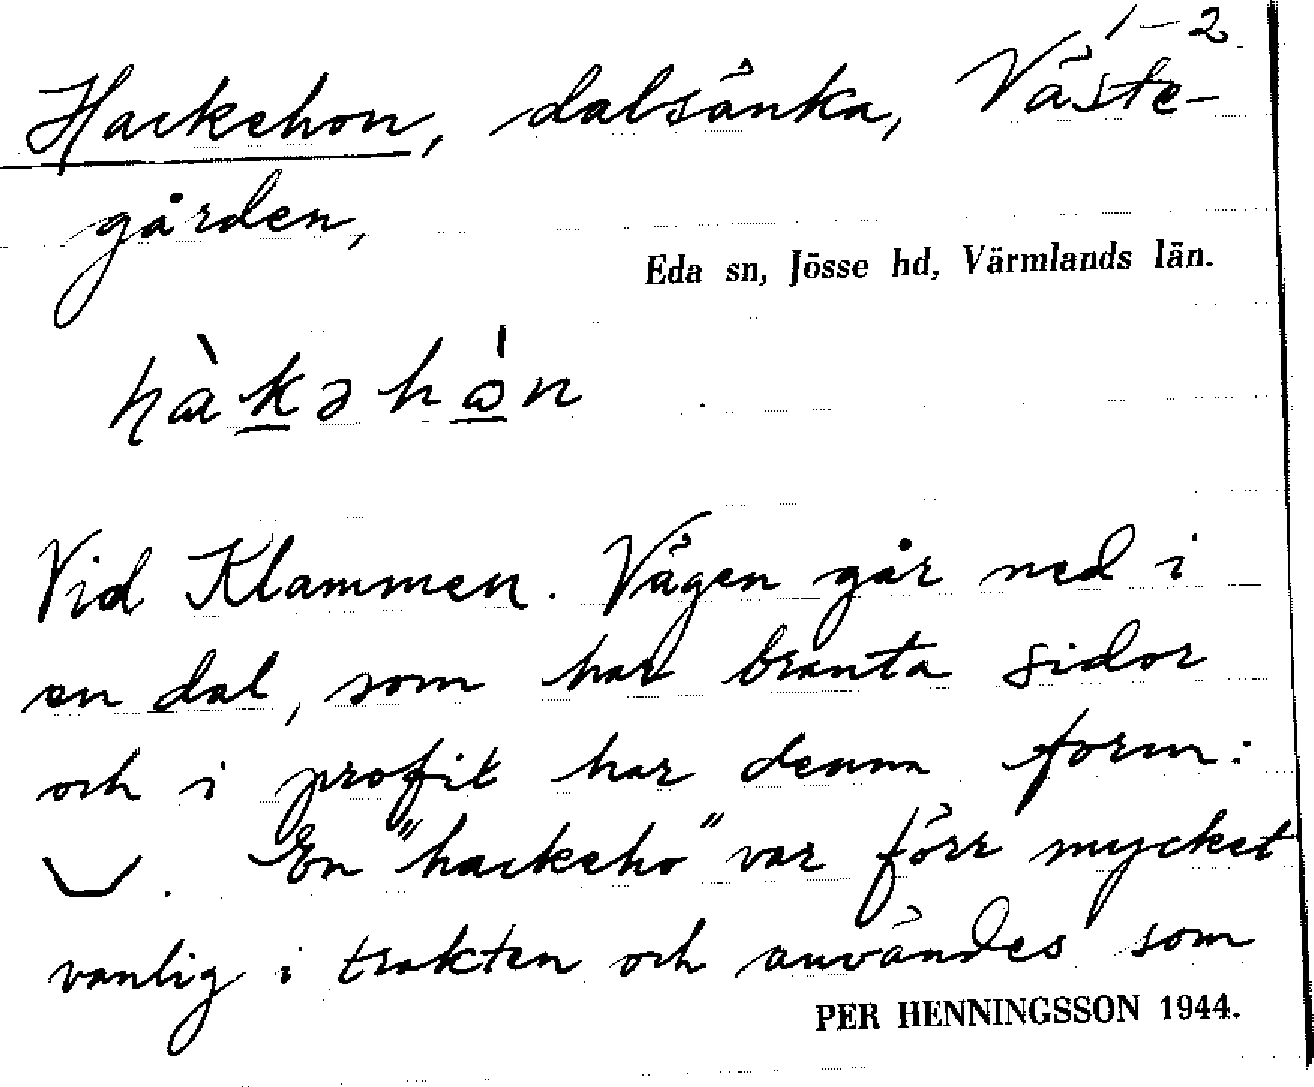 1-2
Hackehon, dalsänka, Väste-
gården,
Eda sn, Jösse hd, Värmlands län.
hàkəhón
Vid Klammen. Vägen går ned i
en dal, som har branta sidor
och i profil har denna form:
. En "hackeho" var förr mycket
vanlig i trakten och användes som
PER HENNINGSSON 1944.